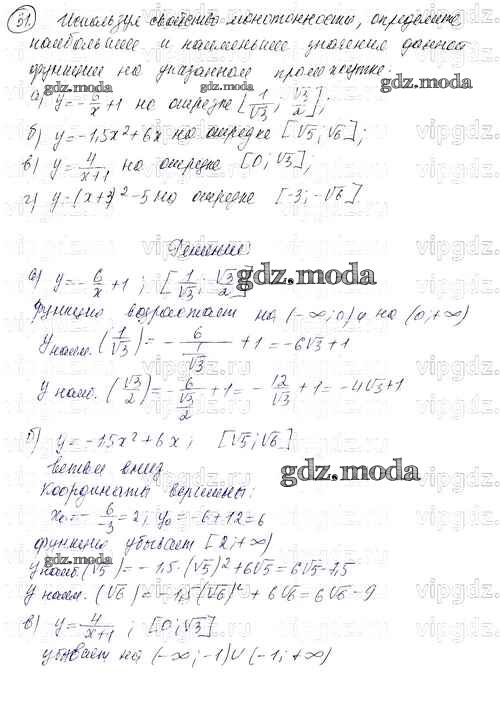 31. Используя свойство монотонности, определите
наибольшее и наименьшее значения данной
функции на указанном промежутке:
gdz.moda
gdz.moda
а) y=-6/x+1 на отрезке [1/√3; √3/2];
б) y=-1,5x²+6x на отрезке [√5; √6];
в) y=4/(x+1) на отрезке [0; √3];
г) y=(x+3)²-5 на отрезке [-3; -√6].
Решение:
а) y=-6/x+1; [1/√3; √3/2]
gdz.moda
Функция возрастает на (-∞; 0) и на (0; +∞)
y наим. (1/√3) = -6/(1/√3) +1 = -6√3+1
y наиб. (√3/2) = -6/(√3/2) +1 = -12/√3 +1 = -4√3+1
б) y=-1,5x²+6x; [√5; √6]
ветви вниз
gdz.moda
Координаты вершины:
x₀=-6/-3=2; y₀=-6+12=6
функция убывает [2; +∞)
gdz.moda
y наиб. (√5) = -1,5·(√5)²+6√5=6√5-7,5
y наим. (√6) = -1,5(√6)²+6√6=6√6-9
gdz.moda
в) y=4/(x+1); [0; √3]
убывает на (-∞; -1)∪(-1; +∞)